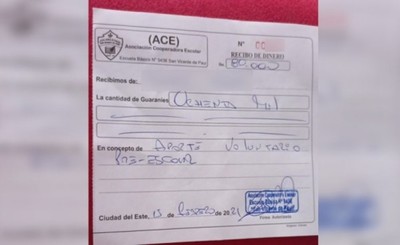 (ACE)
Asociación Cooperadora Escolar
Escuela Básica N° 3436 San Vicente de Paul
N°
RECIBO DE DINERO
Gs. 80.000
Recibimos de:
La cantidad de Guaraníes Ochenta Mil
En concepto de Aporte Voluntario
Pre-Escolar
Ciudad del Este, 13 de Febrero de 20 21
Asociación Cooperadora Escolar
Escuela Básica N° 3436
San Vicente de Paul
Firma Autorizada